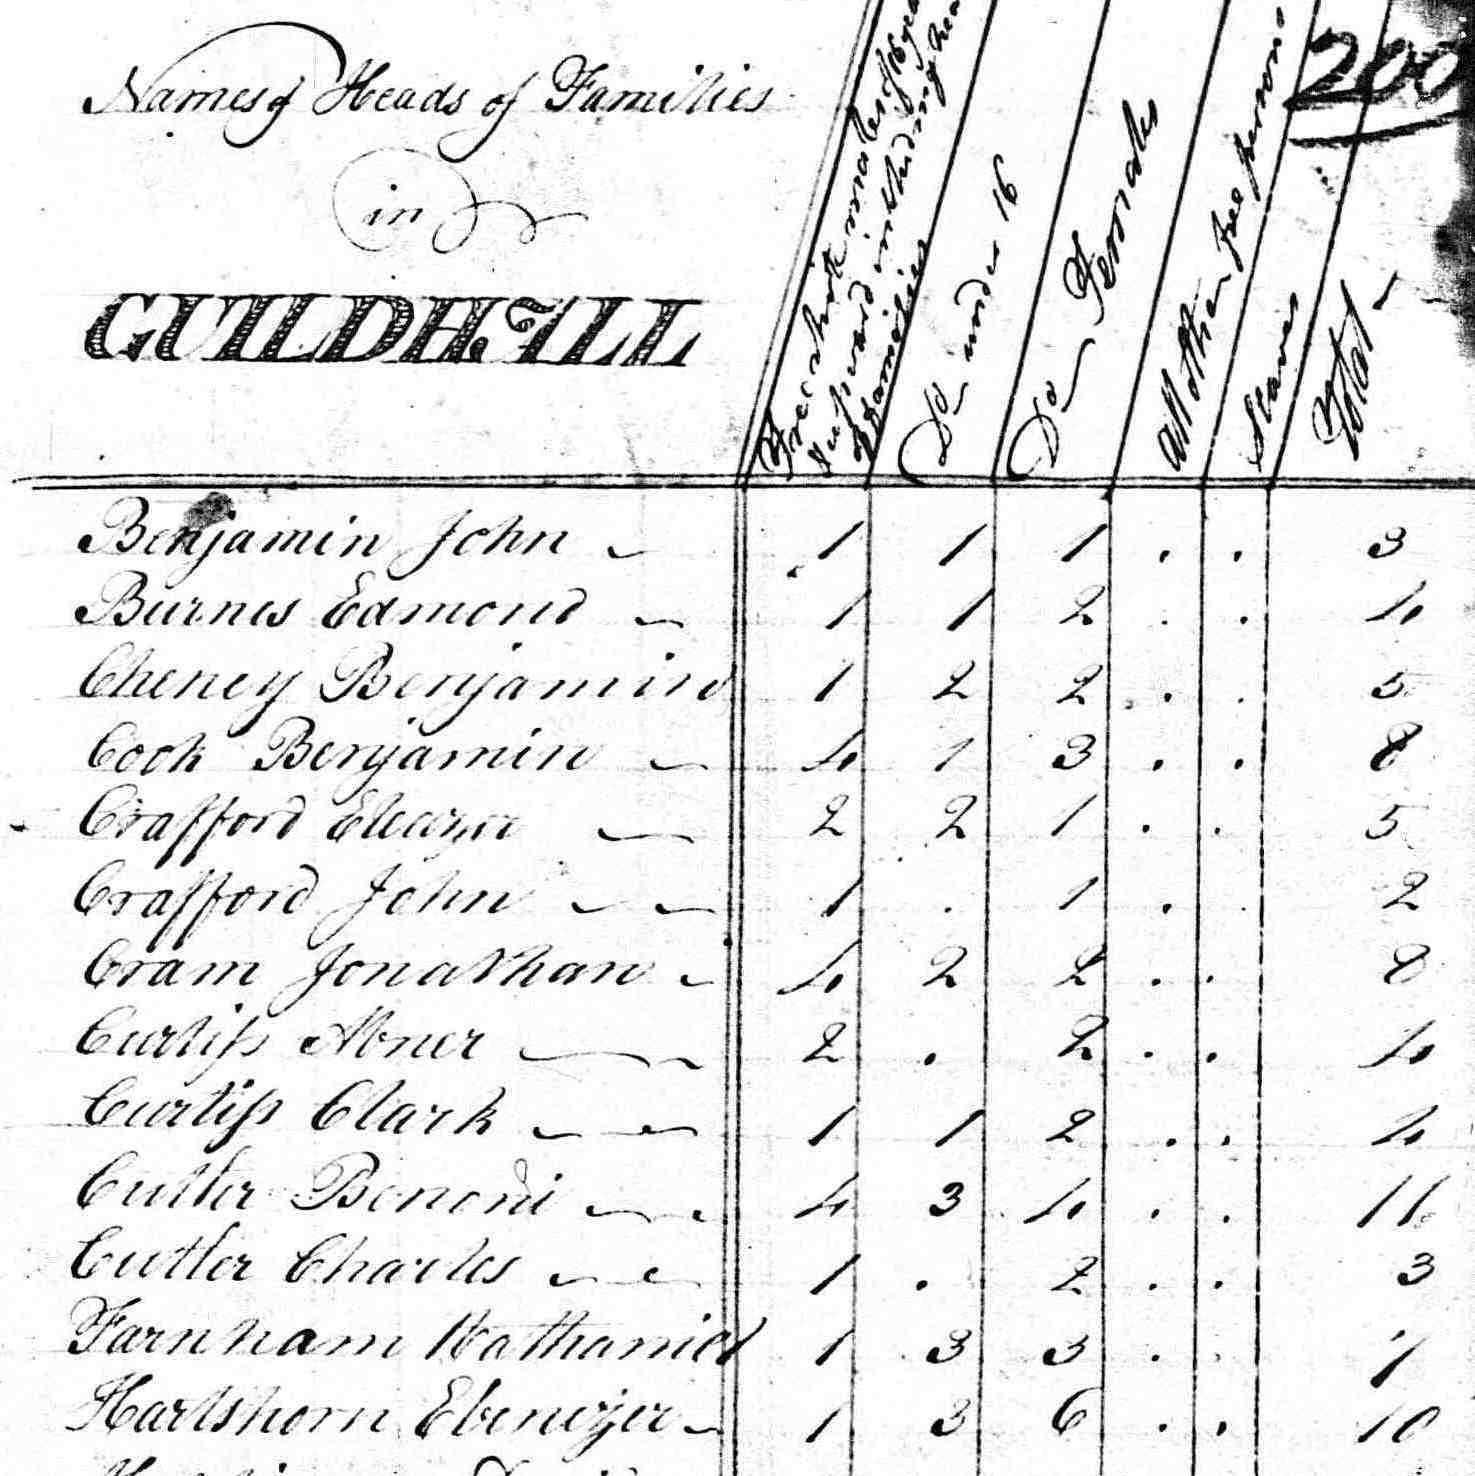 200
Names of Heads of Families
in
GUILDHALL
Free white males of 16 years
& upward including heads
of families
Do under 16
Do Females
All other free persons
Slaves
Total
Benjamin John 1 1 1 . . 3
Burnes Edmond 1 1 2 . . 4
Cheney Benjamin 1 2 2 . . 5
Cook Benjamin 4 1 3 . . 8
Crafford Eleazer 2 2 1 . . 5
Crafford John 1 . 1 . . 2
Cram Jonathan 4 2 2 . . 8
Curtiss Abner 2 . 2 . . 4
Curtiss Clark 1 1 2 . . 4
Cutler Benoni 4 3 4 . . 11
Cutler Charles 1 . 2 . . 3
Farnham Nathaniel 1 3 3 . . 7
Hartshorn Ebenezer 1 3 6 . . 10